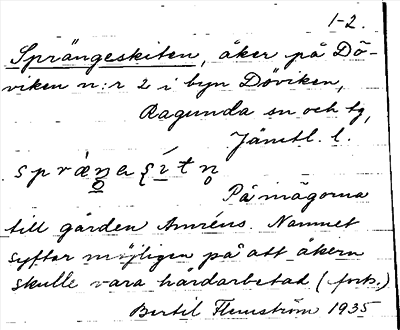 1-2.
Sprängeskiten, åker på Dö-
viken n:r 2 i byn Döviken,
Ragunda sn och tg,
Jämtl. l.
På mägorna
till gården Amréus. Namnet
syftar möjligen på att åkern
skulle vara hårdarbetad (forts.)
Bertil Flemström 1935